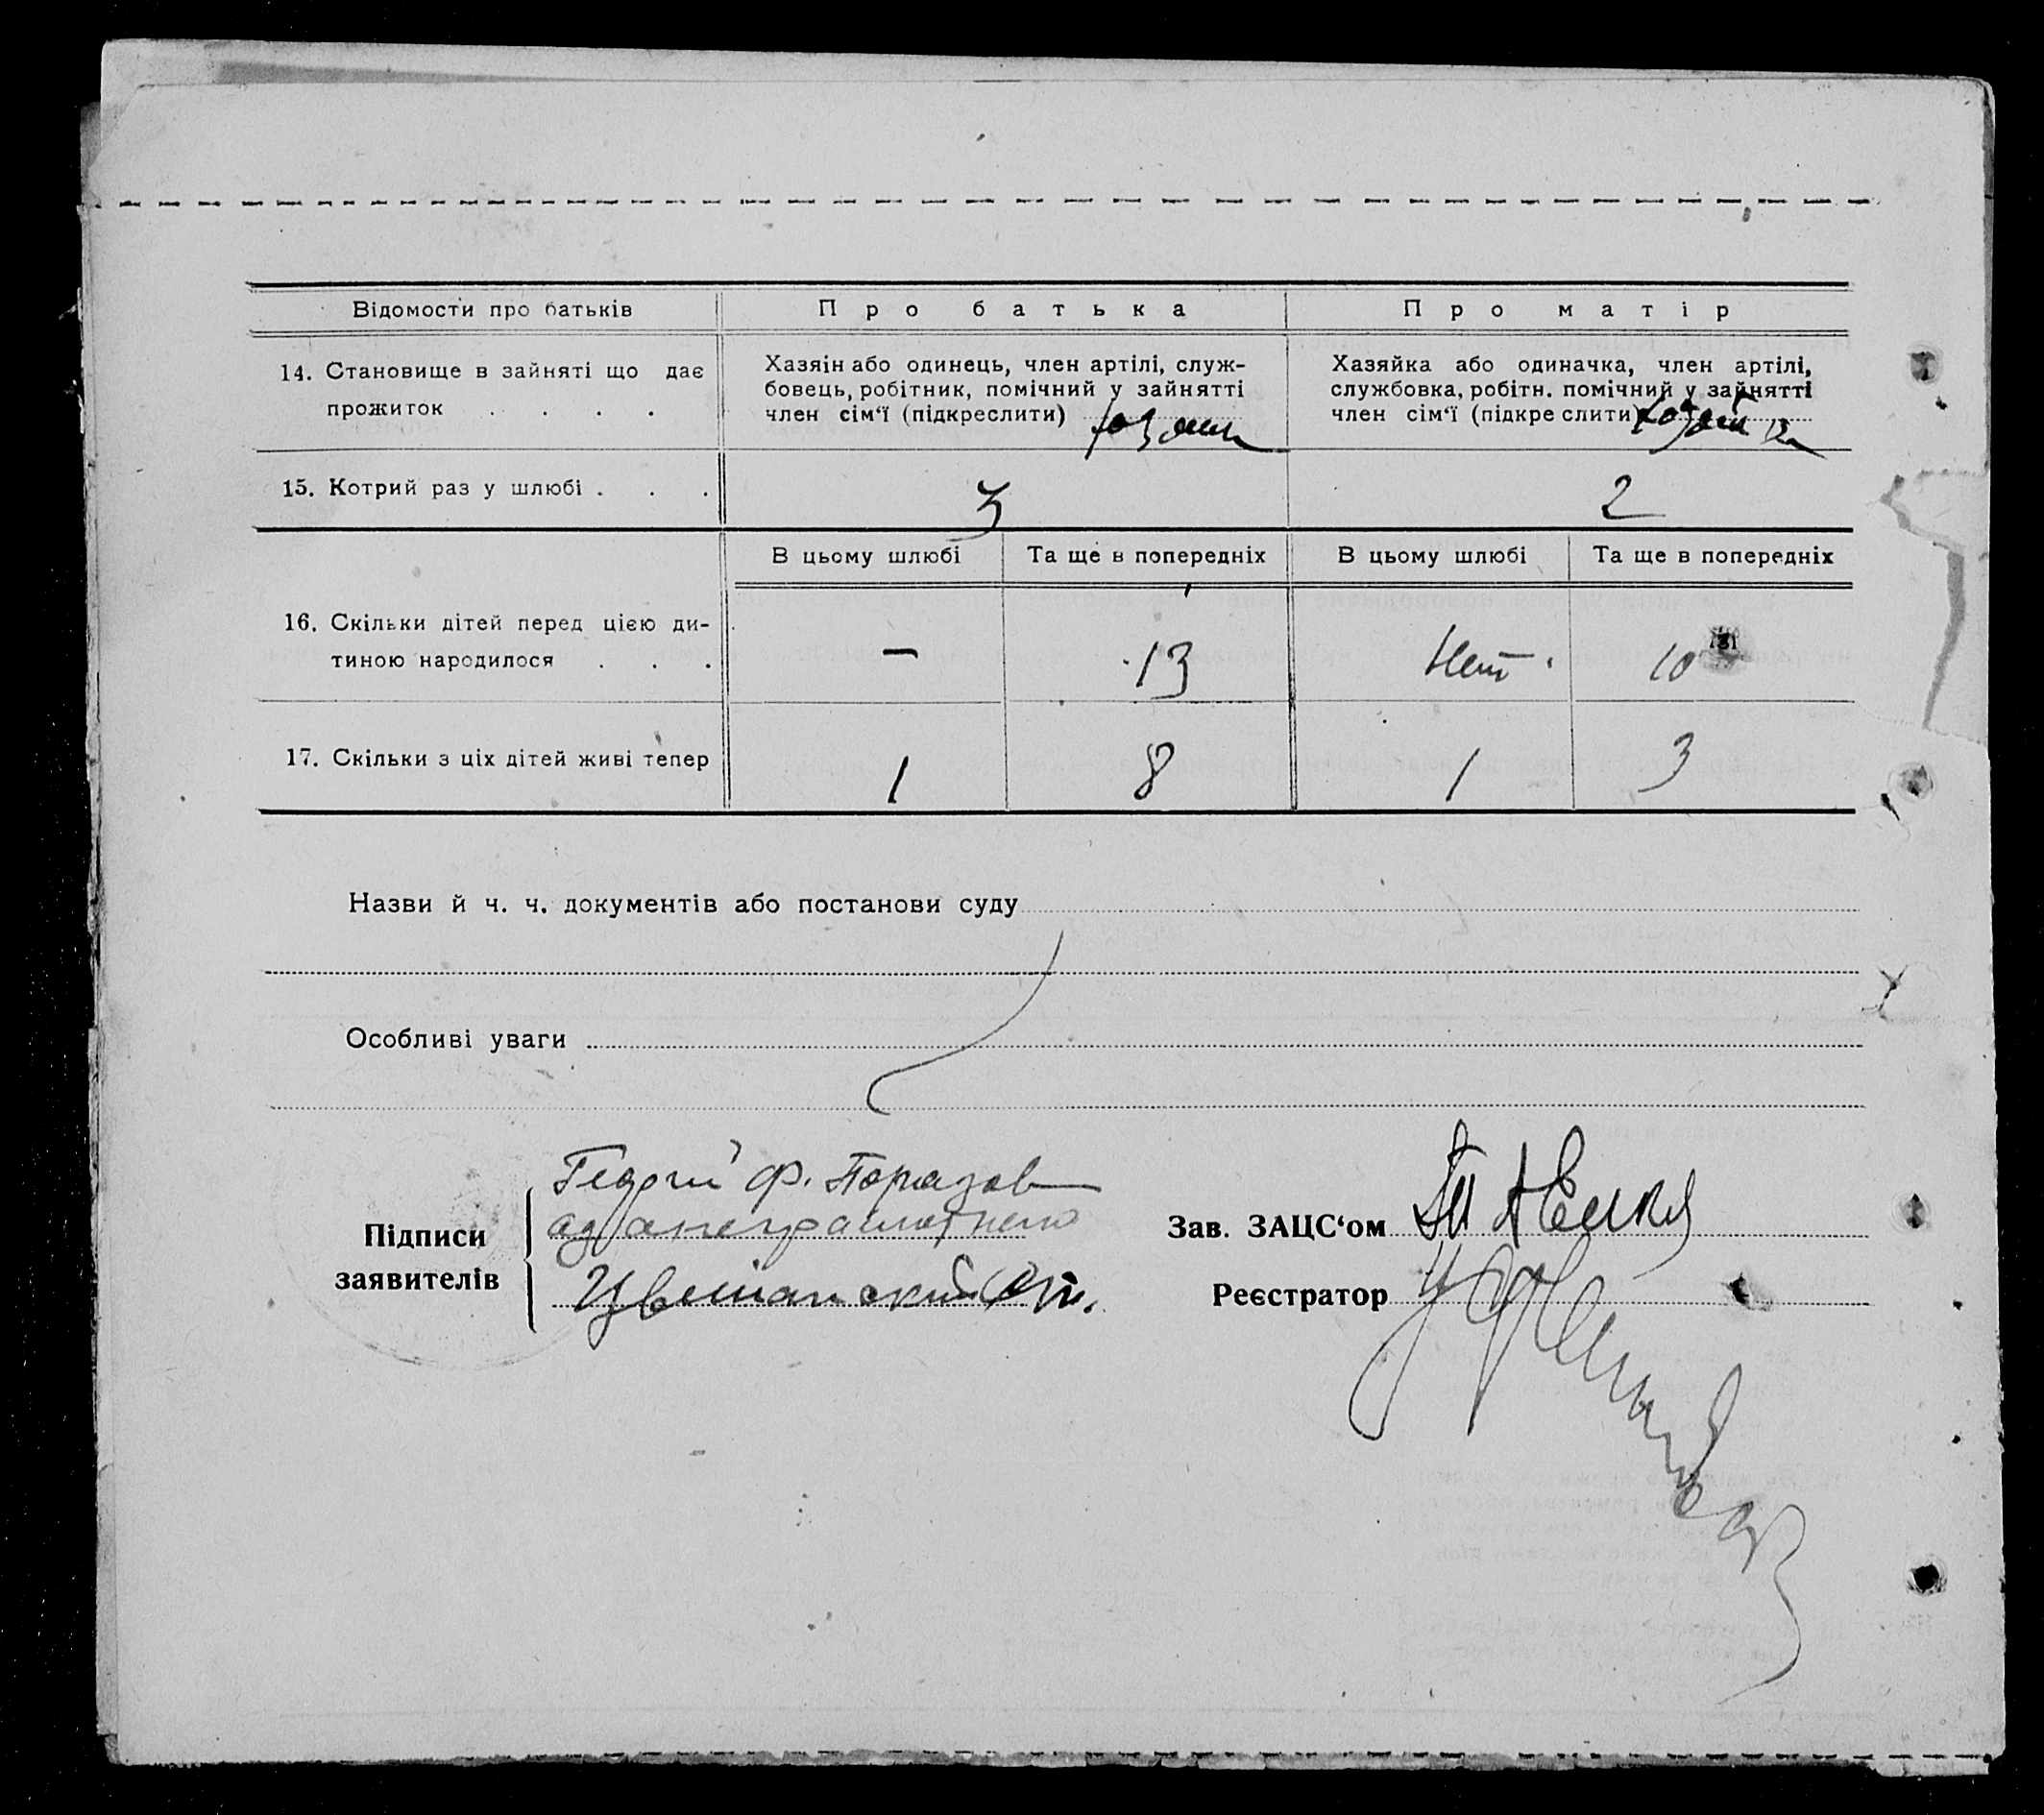 Відомости про батьків
Про батька
Про матір
14. Становище в зайняті що дає
прожиток . . . .
Хазяін або одинець, член артілі, служ-
бовець, робітник, помічний у зайнятті
член сім‘ї (підкреслити)
Хазяйка або одиначка, член артілі,
службовка, робітн. помічний у зайнятті
член сім‘ї (підкре слити)
15. Котрий раз у шлюбі . . .
3
2
В цьому шлюбі
Та ще в попередніх
В цьому шлюбі
Та ще в попередніх
16. Скільки дітей перед цією ди-
тиною народилося . . .
—
13
Нет
10
17. Скільки з ціх дітей живі тепер
1
8
1
3
Назви й ч. ч. документів або постанови суду
Особливі уваги
Підписи
заявителів
Ф.
Зав. ЗАЦС‘ом
Реєстратор